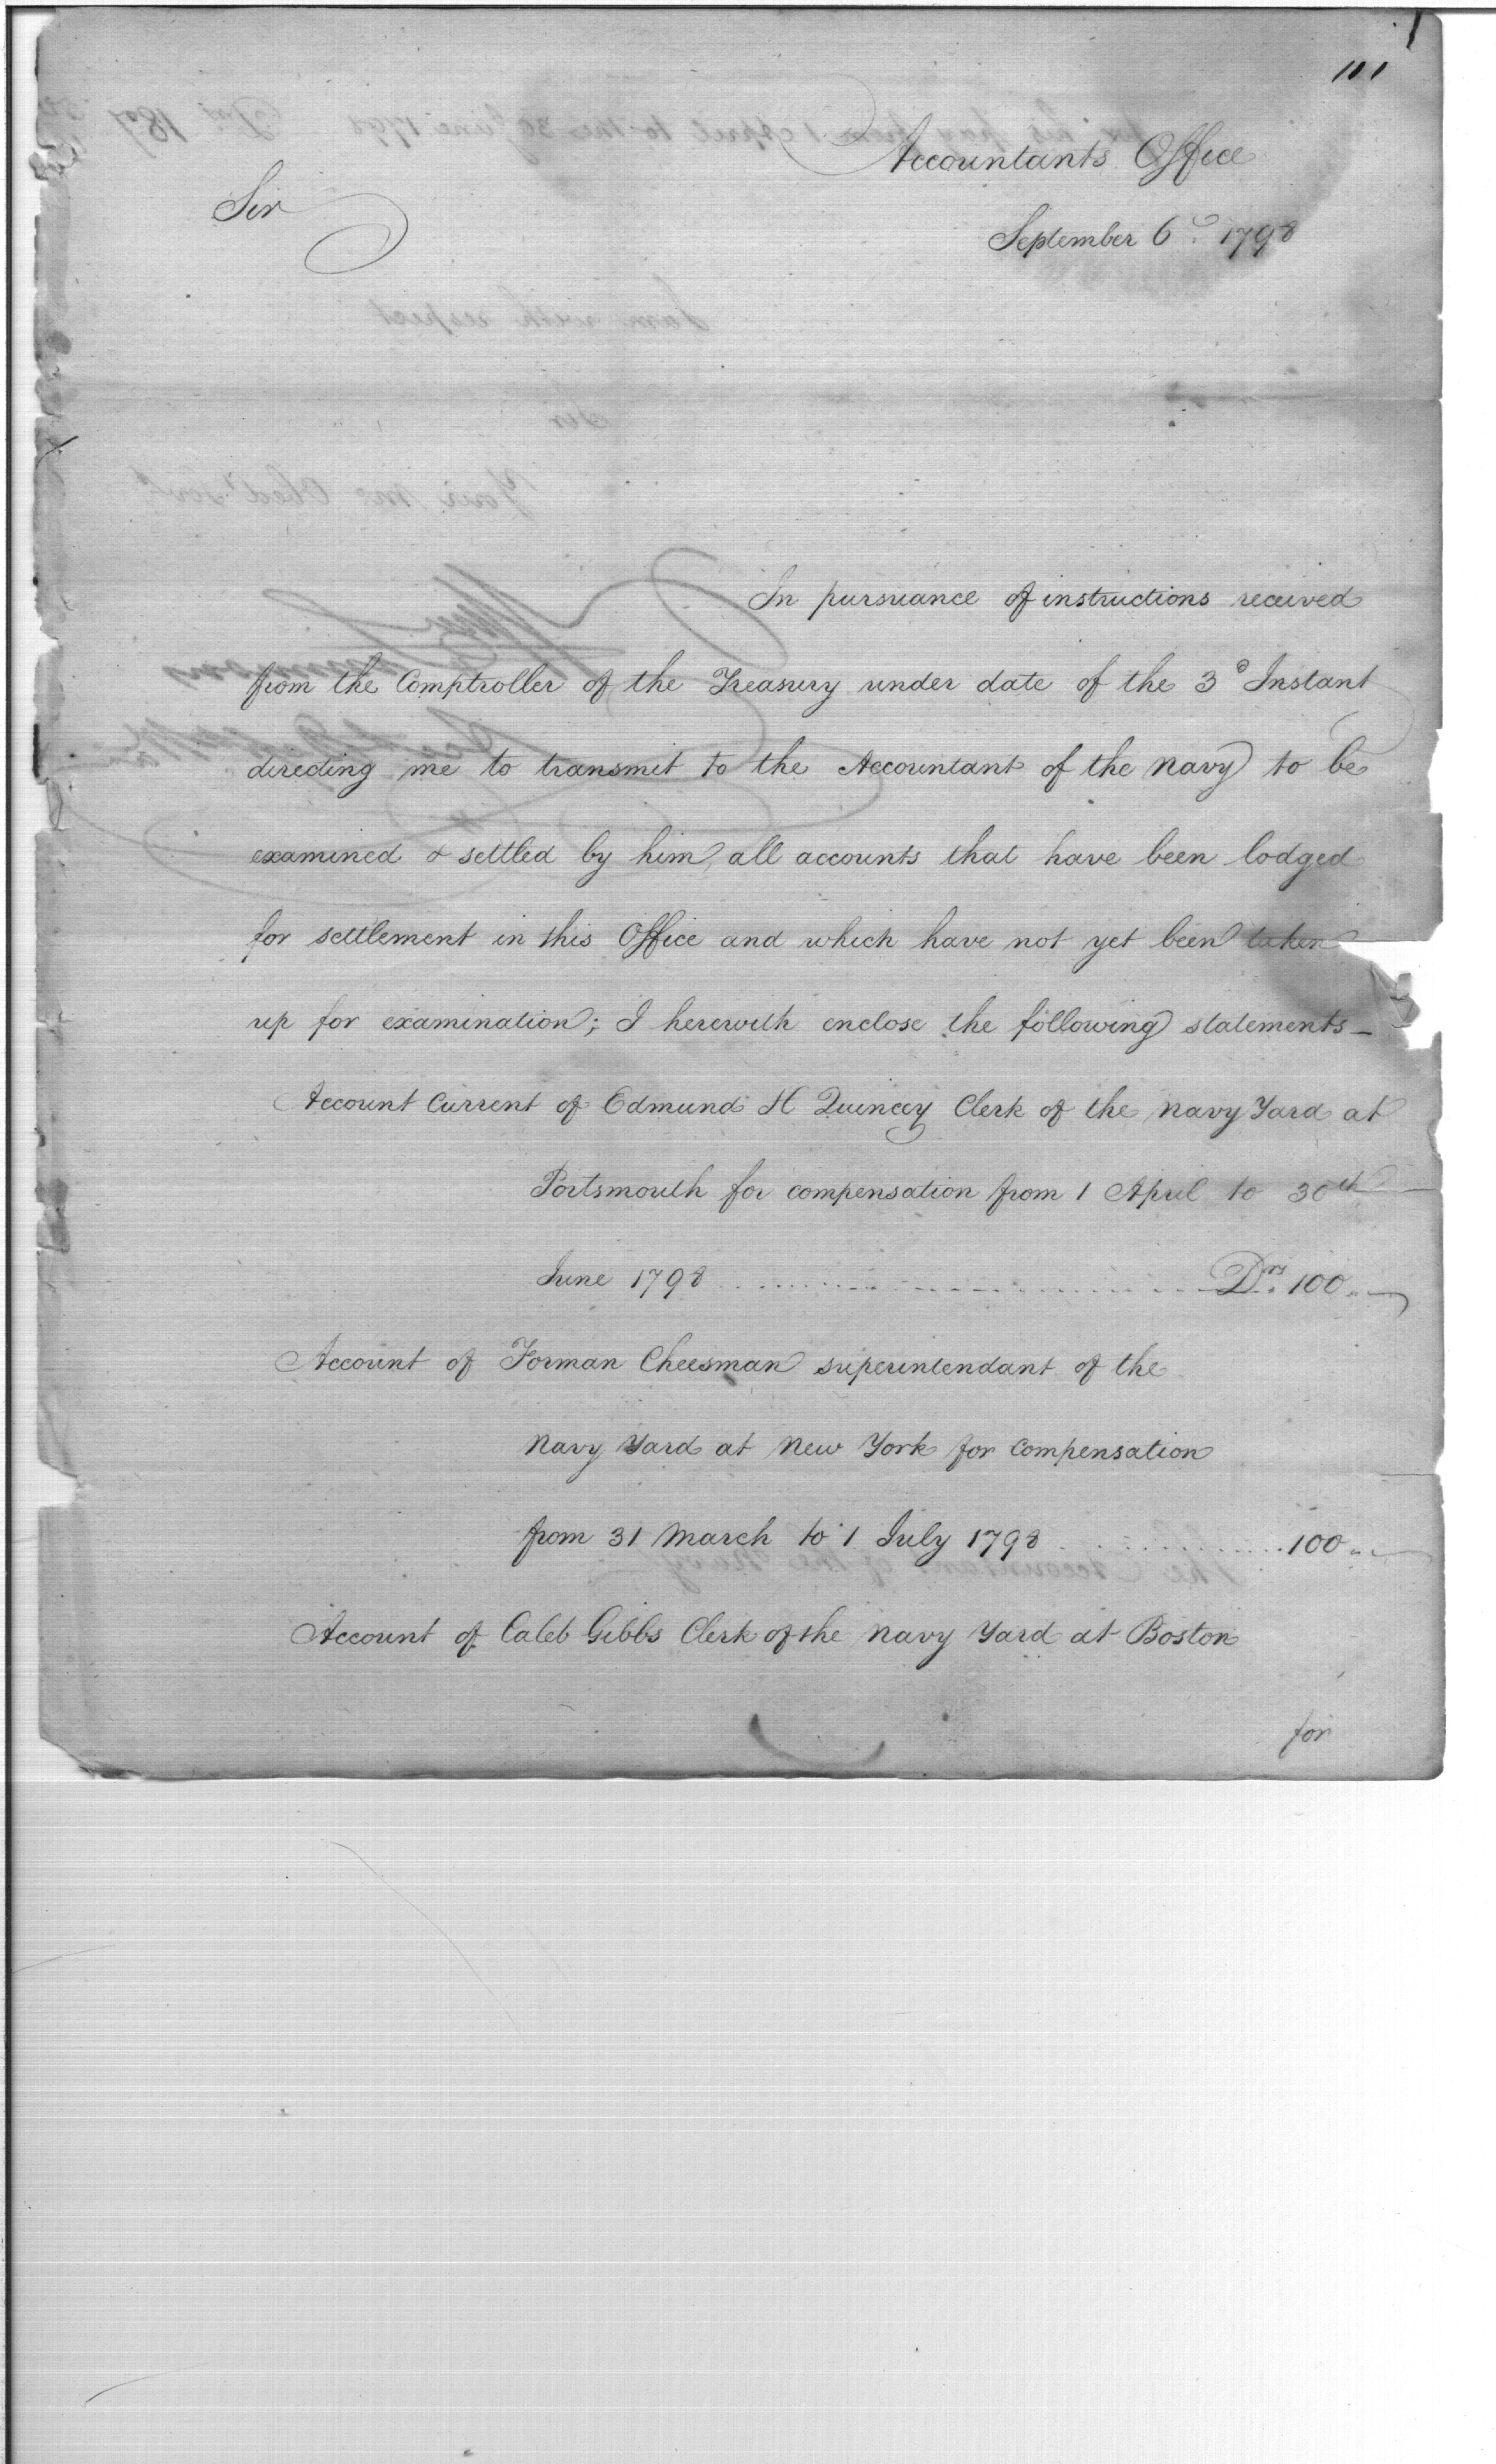 101
Accountants Office
Sir
September 6th. 1798
In pursuance of instructions received
from the Comptroller of the Treasury under date of the 3d Instant
directing me to transmit to the Accountant of the Navy to be
examined & settled by him, all accounts that have been lodged
for settlement in this Office and which have not yet been taken
up for examination; I herewith enclose the following statements_
Account Current of Edmund H Quincey Clerk of the Navy Yard at
Portsmouth for compensation from 1 April to 30th
June 1798 .......... Drs. 100 "
Account of Forman Cheesman superintendant of the
Navy Yard at New York for compensation
from 31 March to 1 July 1798 .......... 100 "
Account of Caleb Gibbs Clerk of the Navy Yard at Boston
for